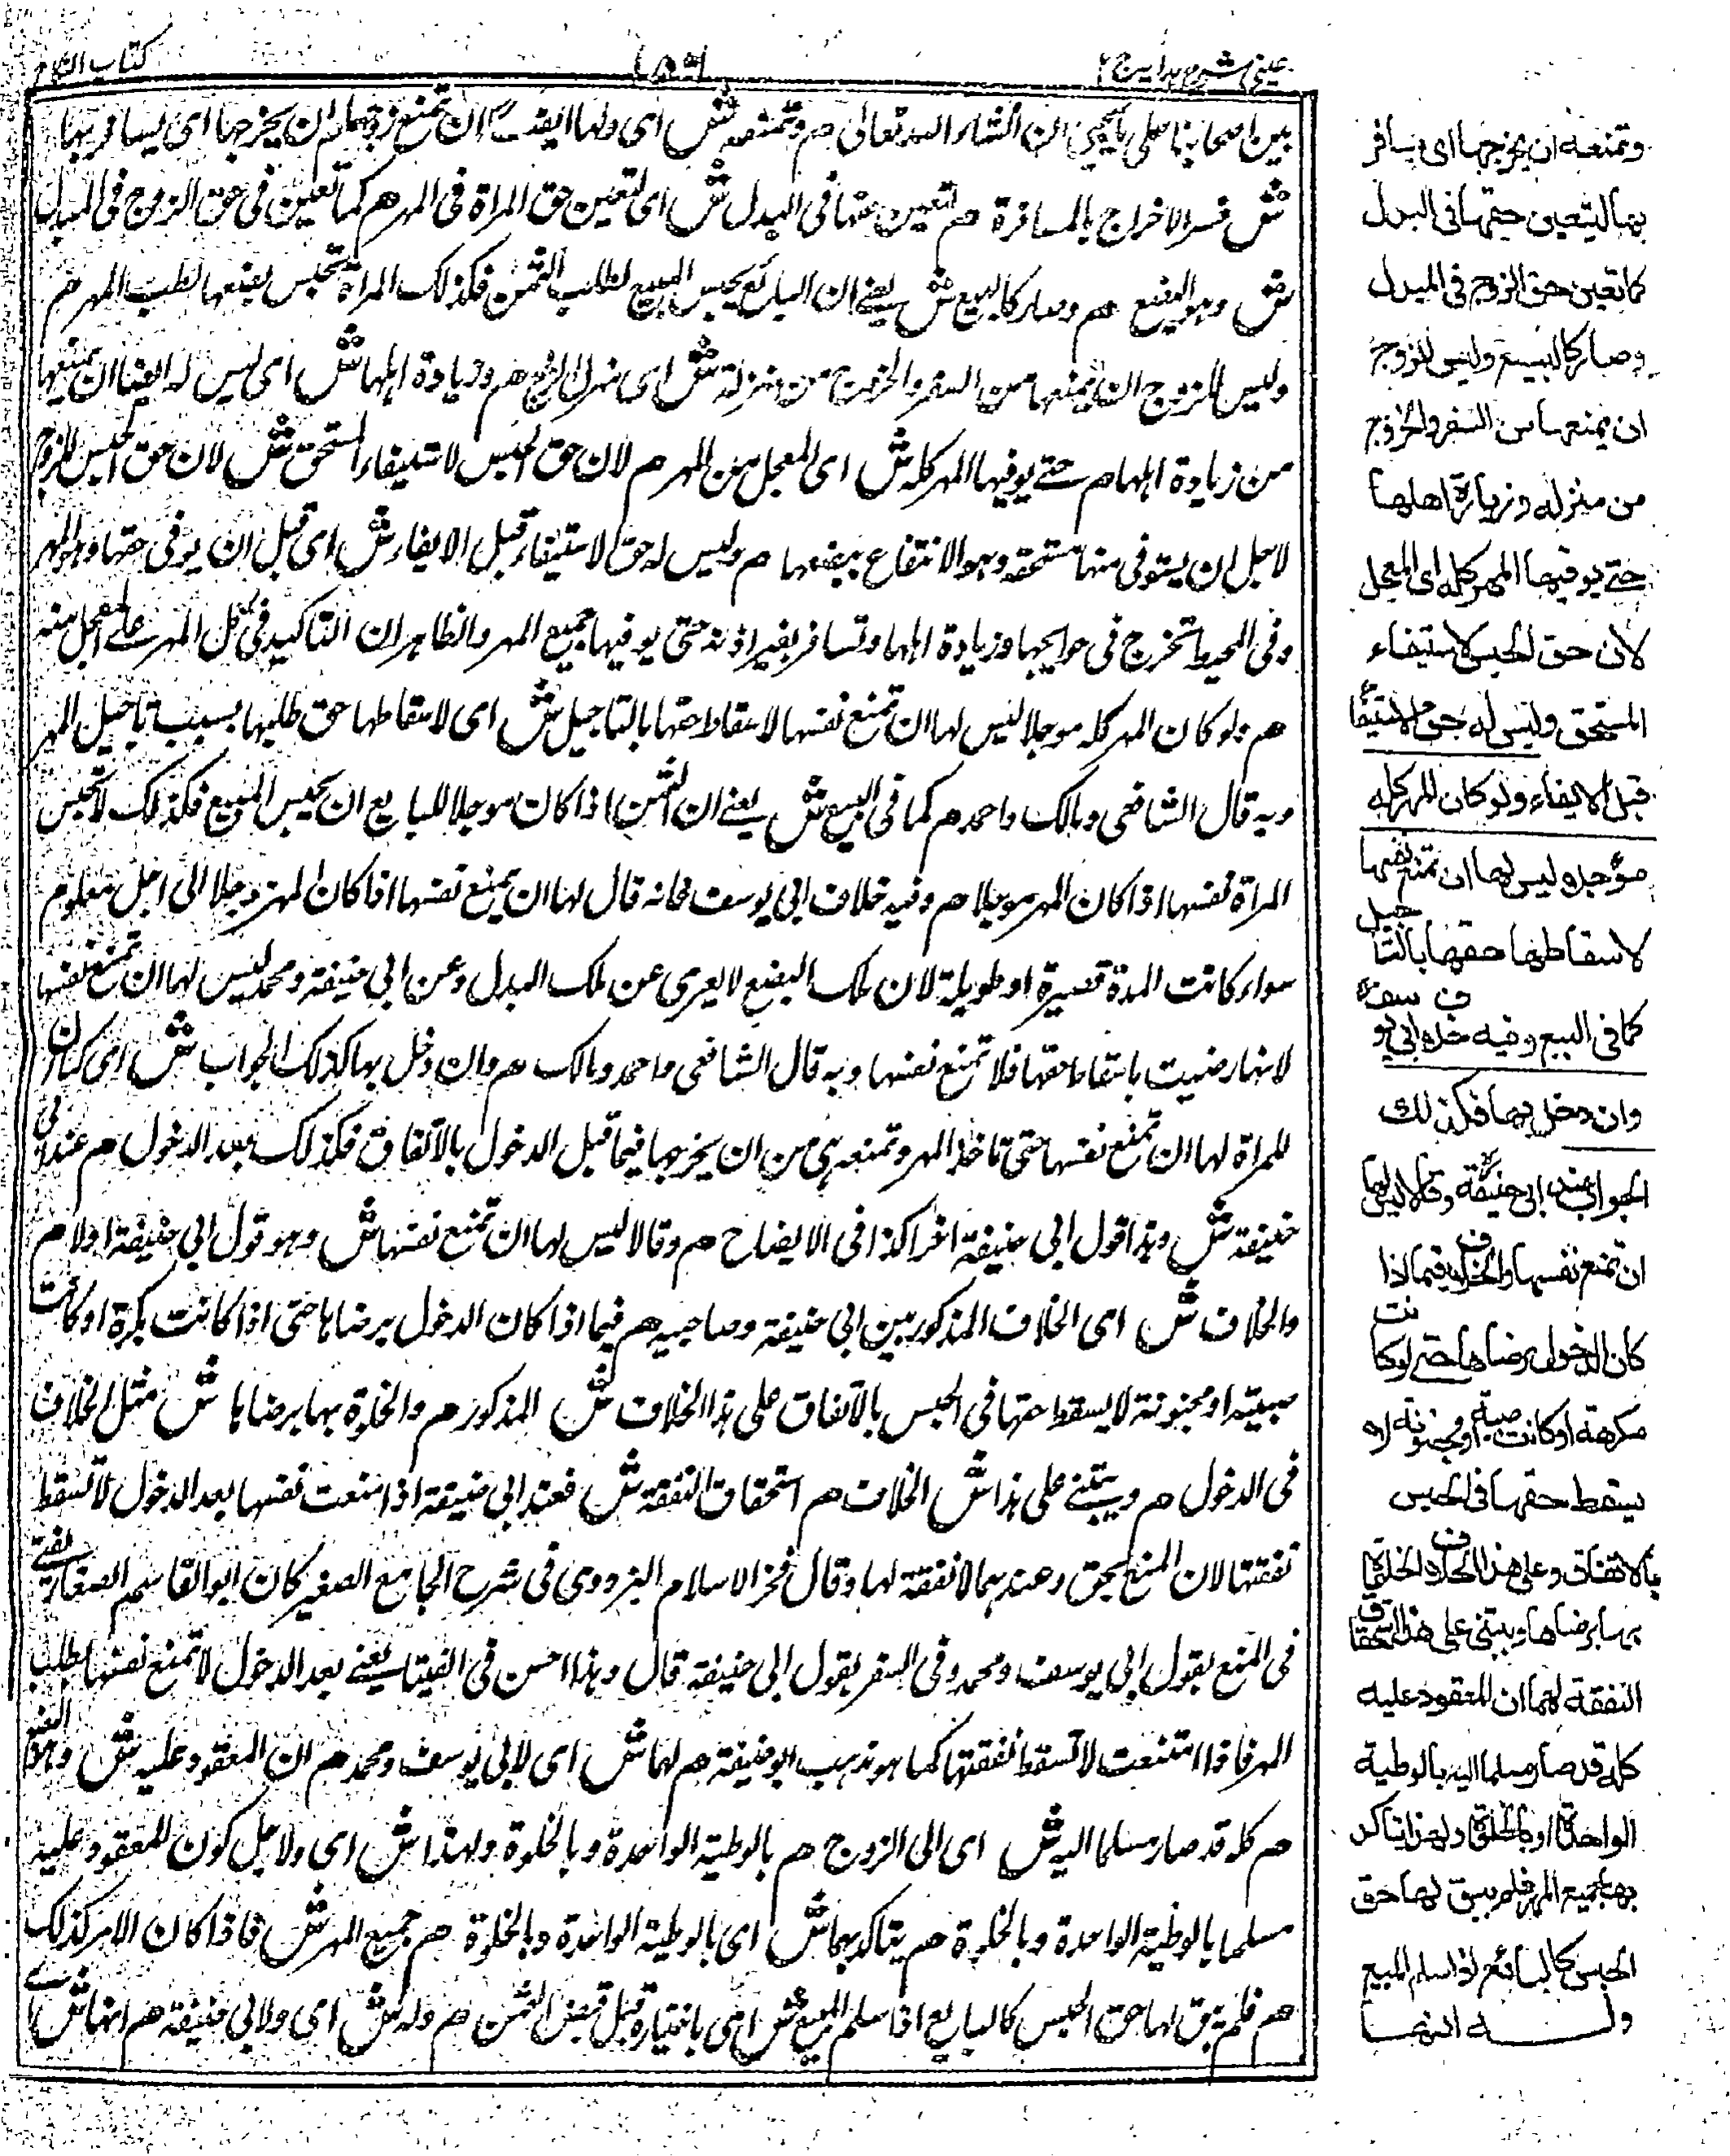 عينى شرح هدايہ ج ٢
كتاب النكاح
بين اصحابنا على ما يجئ ان شاء الله تعالى هم وتمنعه ش اى ولها ايضا ان تمنع زوجها هم ان يخرجها اى يسافر بها
ش فسر الاخراج بالمسافرة هم لتعين حقها فى البدل ش اى لتعين حق المراة فى المهر هم كما تعين فى حق الزوج فى المبدل
ش وهو البضع هم وصار كالبيع ش يعنے ان البائع يحبس المبيع لطلب الثمن فكذلك المراة تحبس بضعها لطلب المهر هم
وليس للزوج ان يمنعها من السفر والخروج من منزله ش اى منزل الزوج هم وزيادة اهلها ش اى ليس له ايضا ان يمنعها
من زيادة اهلها هم حتے يوفيها المهر كله ش اى المعجل من المهر هم لان حق الحبس لاستيفاء المستحق ش لان حق الحبس للزوج
لاجل ان يستوفى منها مستحقه وهو الانتفاع ببضعها هم وليس له حق الاستيفاء قبل الايفاء ش اى قبل ان يوفى حقها وهو المهر
وفى المحيط تخرج فى حوايجها وزيادة اهلها وتسافر بغير اذنه حتى يوفيها جميع المهر والظاهر ان التاكيد فى كل المهر على المعجل منه
هم ولو كان المهر كله موجلا ليس لها ان تمنع نفسها لاسقاط حقها بالتاجيل ش اى لاسقاطها حق طلبها بسبب تاجيل المهر
وبه قال الشافعى ومالك واحمد هم كما فى البيع ش يعنے ان الثمن اذا كان موجلا للبايع ان يحبس المبيع فكذلك لا تحبس
المراة نفسها اذا كان المهر موجلا هم وفيه خلاف ابى يوسف فانه قال لها ان يمنع نفسها اذا كان المهر موجلا الى اجل معلوم
سواء كانت المدة قصيرة او طويلة لان ملك البضع لا يعرى عن ملك البدل وعن ابى حنيفة ومحمد ليس لها ان تمنع نفسها
لانها رضيت باسقاط حقها فلا تمنع نفسها وبه قال الشافعى واحمد ومالك هم وان دخل بها كذلك الجواب ش اى كما ان
للمراة لها ان تمنع نفسها حتى تاخذ المهر وتمنعه هى من ان يخرجها فيما قبل الدخول بالاتفاق فكذلك بعد الدخول هم عند ابى
حنيفة ش وهذا قول ابى حنيفة اخرا كذا فى الايضاح هم وقالا ليس لها ان تمنع نفسها ش وهو قول ابى حنيفة اولا هم
والخلاف ش اى الخلاف المذكور بين ابى حنيفة وصاحبيه هم فيما اذا كان الدخول برضاها حتى اذا كانت مكرهة او كانت
صبية او مجنونة لا يسقط حقها فى الحبس بالاتفاق على هذا الخلاف ش المذكور هم والخلوة بها برضاها ش مثل الخلاف
فى الدخول هم ويبتنے على هذا ش الخلاف هم استحقاق النفقة ش فعند ابى حنيفة اذا منعت نفسها بعد الدخول لا تسقط
نفقتها لان المنع بحق وعندهما لا نفقة لها وقال فخر الاسلام البزدوى فى شرح الجامع الصغير كان ابو القاسم الصفار يفتے
فى المنع بقول ابى يوسف ومحمد وفى السفر بقول ابى حنيفة قال وهذا احسن فى الفتيا يعنے بعد الدخول لا تمنع نفسها لطلب
المهر فاذا امتنعت لا تسقط نفقتها كما هو مذهب ابو حنيفة هم لهما ش اى لابى يوسف ومحمد هم ان المعقود عليه ش وهو البضع
هم كله قد صار مسلما اليه ش اى الى الزوج هم بالوطية الواحدة وبالخلوة ولهذا ش اى ولاجل كون المعقود عليه
مسلما بالوطية الواحدة وبالخلوة هم يتاكد بهما ش اى بالوطية الواحدة وبالخلوة هم جميع المهر ش فاذا كان الامر كذلك
هم فلم يبق لها حق الحبس كالبايع اذا سلم المبيع ش اى باختياره قبل قبض الثمن هم وله ش اى ولابى حنيفة هم انها ش
وتمنعه ان يخرجها اى يسافر
بها ليتعين حقها فى البدل
كما تعين حق الزوج فى المبدل
وصار كالبيع وليس للزوج
ان يمنعها من السفر والخروج
من منزله وزيارة اهلها
حتے يوفيها المهر كله اى المعجل
لان حق الحبس لاستيفاء
المستحق وليس له حق الاستيفاء
قبل الايفاء ولو كان المهر كله
مؤجلا وليس لها ان تمنع نفسها
لاسقاطها حقها بالتاجيل
كما فى البيع وفيه خلاف ابى يوسف
وان دخل بها فكذلك
الجواب عند ابى حنيفة وقالا ليس لها
ان تمنع نفسها والخلاف فيما اذا
كان الدخول برضاها حتے لو كانت
مكرهة او كانت صبية او مجنونة لا
يسقط حقها فى الحبس
بالاتفاق وعلى هذا الخلاف الخلوة
بها برضاها ويبتنى على هذا استحقاق
النفقة لهما ان المعقود عليه
كله قد صار مسلما اليه بالوطية
الواحدة او بالخلوة ولهذا يتاكد
بها جميع المهر فلم يبق لها حق
الحبس كالبائع اذا سلم المبيع
وله انها